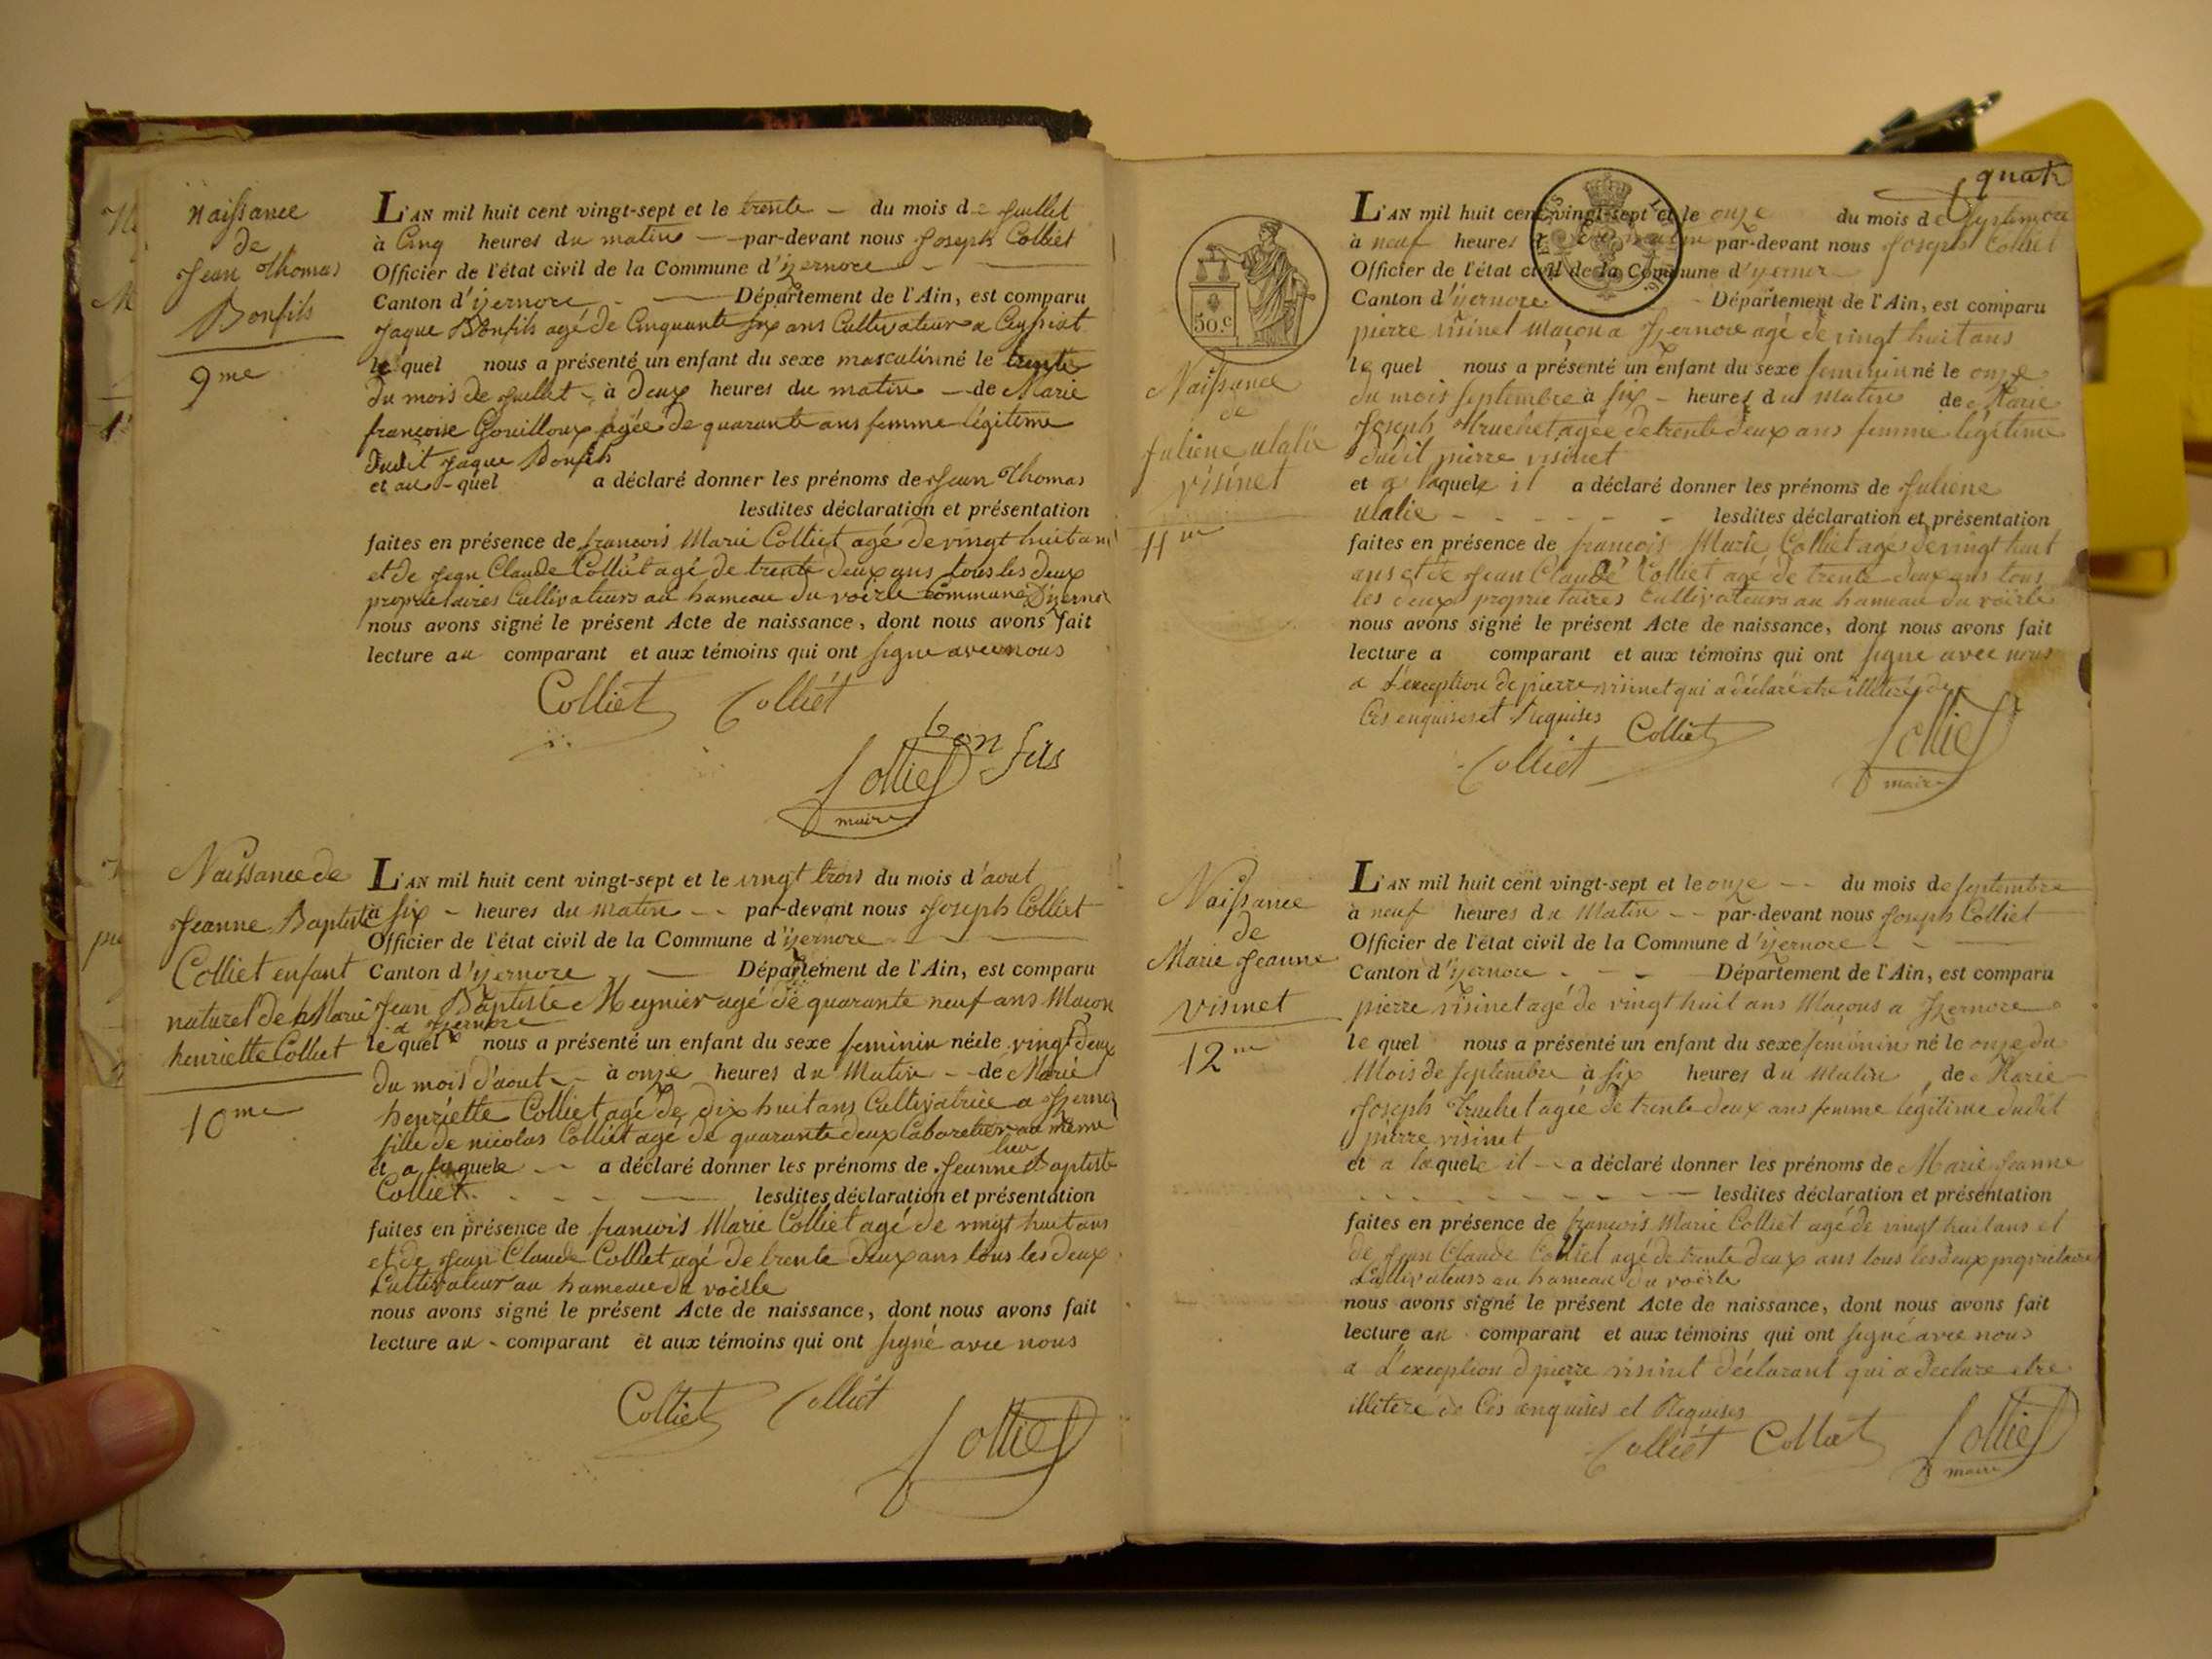 Naissance
de
Jean Thomas
Bonfils
9me
L'AN mil huit cent vingt-sept et le trente – du mois de Juillet
à Cinq heures du matin – par-devant nous Joseph Colliet
Officier de l'état civil de la Commune d'izernore
Canton d'izernore – Département de l'Ain, est comparu
Jaque Bonfils agé de Cinquante six ans Cultivateur a Ceyssiat
le quel nous a présenté un enfant du sexe masculin né le trente
du mois de Juillet – à deux heures du matin – de Marie
françoise Gouilloux agée de quarante ans femme légitime
dudit Jaque Bonfils
et au – quel a déclaré donner les prénoms de Jean Thomas
lesdites déclaration et présentation
faites en présence de francois Marie Colliet agé de vingt huit ans
et de Jean Claude Colliet agé de trente deux ans tous les deux
propriétaires Cultivateurs au hameau du voerle commune D'izernor
nous avons signé le présent Acte de naissance, dont nous avons fait
lecture au comparant et aux témoins qui ont signé avec nous
Colliet Colliét
bon fils
Colliet
maire
Naissance de
Jeanne Baptiste
Colliet enfant
naturel de Marie
henriette Colliet
10me
L'AN mil huit cent vingt-sept et le vingt trois du mois d'aout
à six – heures du matin – par-devant nous Joseph Colliet
Officier de l'état civil de la Commune d'izernore
Canton d'izernore – Département de l'Ain, est comparu
Jean Baptiste Meynier agé de quarante neuf ans Maçon
a Izernore
le quel nous a présenté un enfant du sexe feminin née le vingt deux
du mois d'aout – à onze heures du Matin – de Marie
henriette Colliet agé de dix huit ans Cultivatrice a Izernor
fille de nicolas Colliet agé de quarante deux Cabaretier au même
lieu
et a laquele – a déclaré donner les prénoms de Jeanne Baptiste
Colliet – lesdites déclaration et présentation
faites en présence de francois Marie Colliet agé de vingt huit ans
et de Jean Claude Colliet agé de trente deux ans tous les deux
Cultivateur au hameau du voerle
nous avons signé le présent Acte de naissance, dont nous avons fait
lecture au – comparant et aux témoins qui ont signé avec nous
Colliet Colliét
Colliet
quat
50.c
Naissance
de
Juliene ulalie
visinet
11me
L'AN mil huit cent vingt-sept et le onze du mois de Septembre
à neuf heures du matin par-devant nous Joseph Colliet
Officier de l'état civil de la Commune d'izernore
Canton d'izernore – Département de l'Ain, est comparu
pierre visinet Maçon a Izernore agé de vingt huit ans
le quel nous a présenté un enfant du sexe feminin né le onze
du mois septembre à six – heures du matin de Marie
Joseph Truchet agée de trente deux ans femme légitime
dudit pierre visinet
et a laquele il a déclaré donner les prénoms de Juliene
ulalie – – – – – lesdites déclaration et présentation
faites en présence de francois Marie Colliet agé de vingt huit
ans et de Jean Claude Colliet agé de trente deux ans tous
les deux proprietaires Cultivateurs au hameau du voërle
nous avons signé le présent Acte de naissance, dont nous avons fait
lecture a comparant et aux témoins qui ont signé avec nous
a L'exception de pierre visinet qui a déclaré etre illitéré de
Ces enquises et Requises
Colliet
Colliét
Colliet
maire
Naissance
de
Marie Jeanne
visinet
12me
L'AN mil huit cent vingt-sept et le onze – – du mois de Septembre
à neuf heures du Matin – – par-devant nous Joseph Colliet
Officier de l'état civil de la Commune d'izernore
Canton d'izernore – – – Département de l'Ain, est comparu
pierre visinet agé de vingt huit ans Maçons a Izernore
le quel nous a présenté un enfant du sexe feminin né le onze du
Mois de Septembre à six heures du Matin, de Marie
Joseph Truchet agée de trente deux ans femme légitime dudit
pierre visinet
et a laquele il – a déclaré donner les prénoms de Marie Jeanne
– – – – – – lesdites déclaration et présentation
faites en présence de francois Marie Colliet agé de vingt huit ans et
de Jean Claude Colliet agé de trente deux ans tous les deux proprietaires
Cultivateurs au hameau du voërle
nous avons signé le présent Acte de naissance, dont nous avons fait
lecture au comparant et aux témoins qui ont signé avec nous
a L'exception d pierre visinet déclarant qui a declare etre
illiteré de Ces enquises et Requises
Colliét Colliet
Colliet
maire